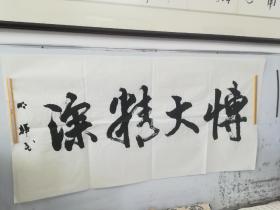 博大精深